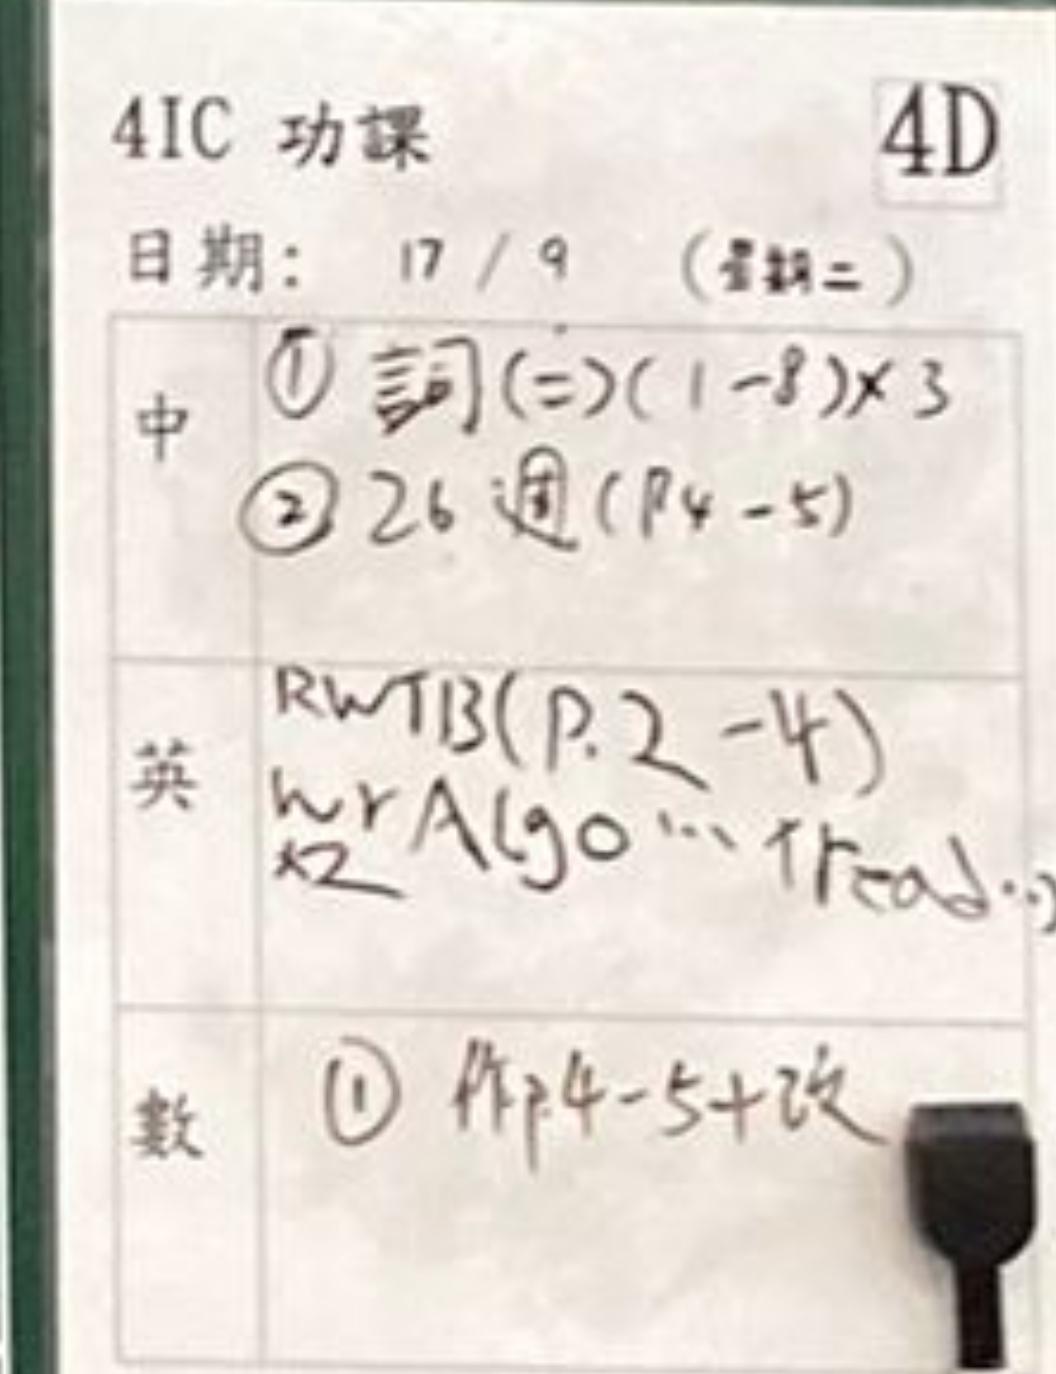 4IC 功課 4D
日期: 17 / 9 (星期二)
中
① 詞(二)(1-8)×3
② 26 週(P4-5)
英
RWTB(P.2-4)
wr Algo ... +read...
x2
數
① 作p.4-5+改